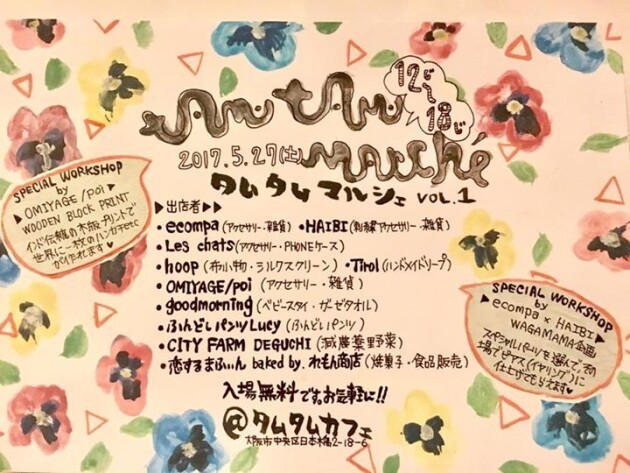 tAm tAm
marché
12じ
〜
18じ
2017.5.27(土)
タムタムマルシェ VOL.1
SPECIAL WORKSHOP
by
▶ OMIYAGE/poi ▶
WOODEN BLOCK PRINT
インド伝統の木版プリントで
世界に一枚のハンカチetc
が作れます♥
▶出店者▶▶
・ecompa(アクセサリー・雑貨) ・HAIBI(刺繍アクセサリー・雑貨)
・Les chats(アクセサリー・PHONEケース)
・hoop(布小物・シルクスクリーン) ・Tirol(ハンドメイドソープ)
・OMIYAGE/poi (アクセサリー・雑貨)
・goodmorning(ベビースタイ・ガーゼタオル)
・ふんどしパンツLucy(ふんどしパンツ)
・CITY FARM DEGUCHI(減農薬野菜)
・恋するまふぃん baked by. れもん商店(焼菓子・食品販売)
SPECIAL WORKSHOP
by
▶ ecompa × HAIBI
WAGAMAMA企画
スペシャルパーツを選んで、その
場でピアス(イヤリング)に
仕上げてもらえます♥
入場無料です。お気軽に!!
@タムタムカフェ
大阪市中央区日本橋2-18-6